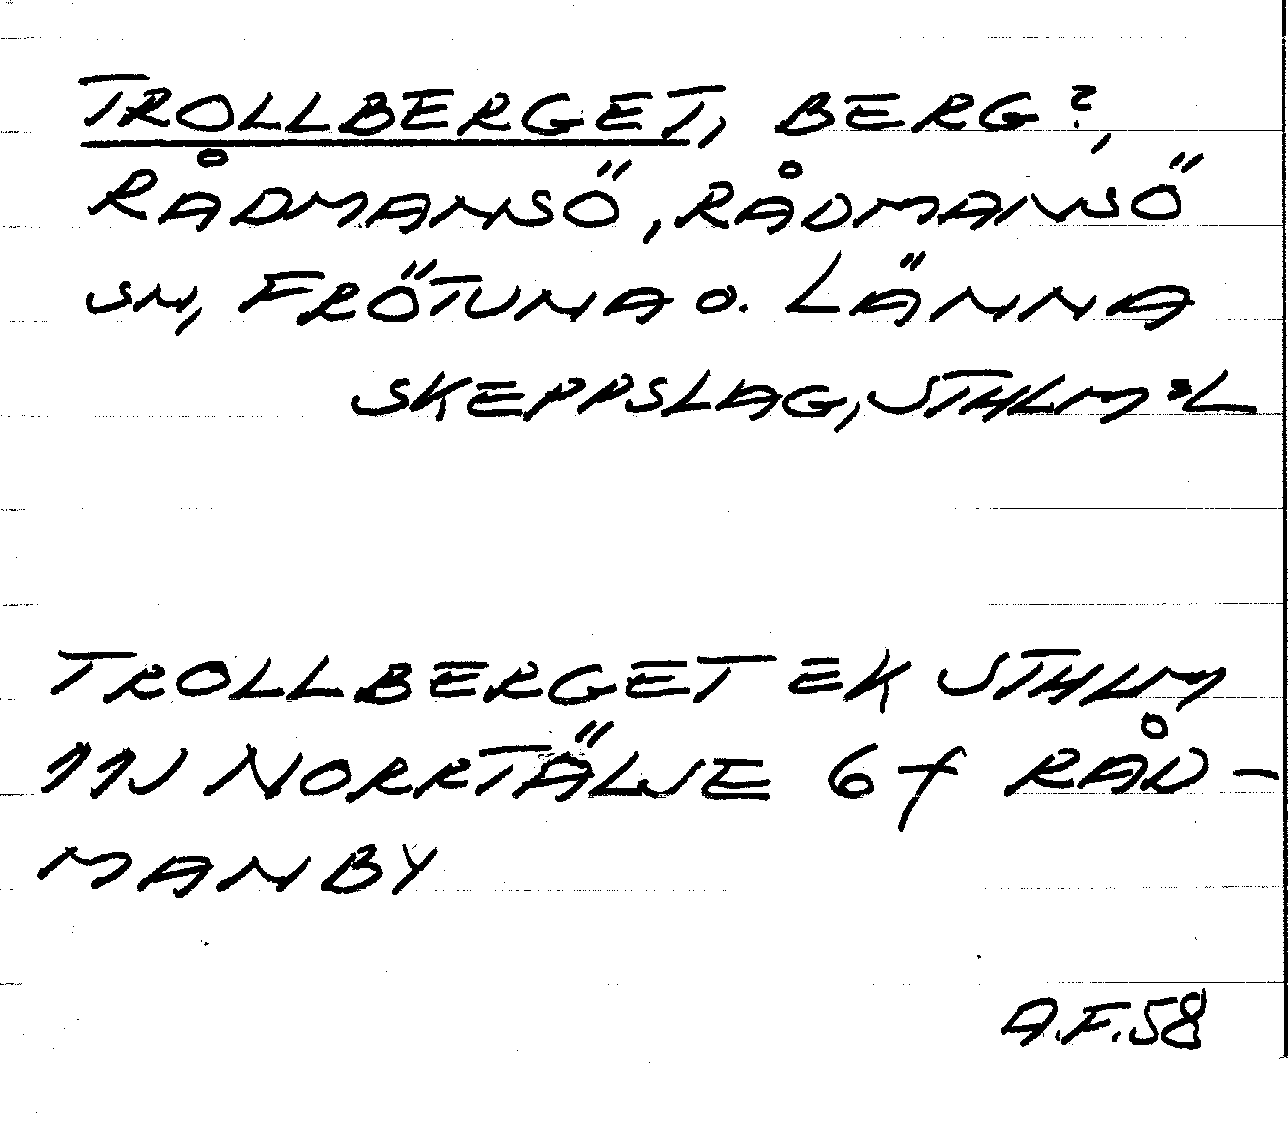 TROLLBERGET, BERG?,
RÅDMANSÖ, RÅDMANSÖ
SN, FRÖTUNA O. LÄNNA
SKEPPSLAG, STHLM:L
TROLLBERGET EK STHLM
11J NORRTÄLJE 6f RÅD-
MANBY
A.F.58